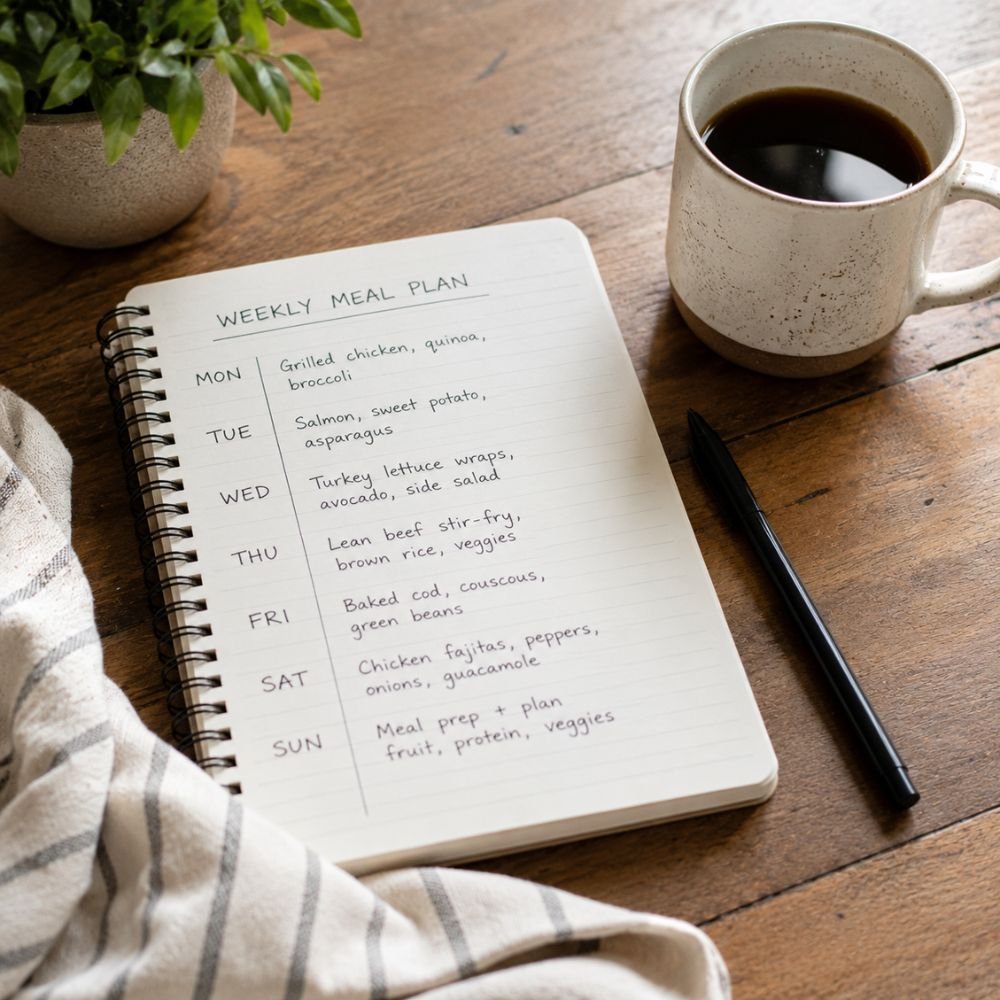 WEEKLY MEAL PLAN
MON Grilled chicken, quinoa,
broccoli
TUE Salmon, sweet potato,
asparagus
WED Turkey lettuce wraps,
avocado, side salad
THU Lean beef stir-fry,
brown rice, veggies
FRI Baked cod, couscous,
green beans
SAT Chicken fajitas, peppers,
onions, guacamole
SUN Meal prep + plan
fruit, protein, veggies